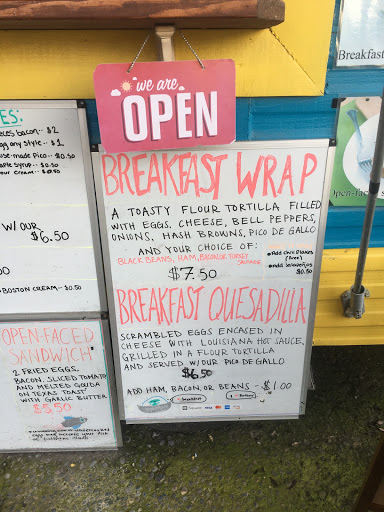 we are
OPEN
BREAKFAST WRAP
A TOASTY FLOUR TORTILLA FILLED
WITH EGGS, CHEESE, BELL PEPPERS,
ONIONS, HASH BROWNS, PICO DE GALLO
AND YOUR CHOICE OF:
BLACK BEANS, HAM, BACON, OR TURKEY
SAUSAGE
Add Chili Flakes
(free)
Add Jalapeños
$0.50
$7.50
BREAKFAST QUESADILLA
SCRAMBLED EGGS ENCASED IN
CHEESE WITH LOUISIANA HOT SAUCE,
GRILLED IN A FLOUR TORTILLA
AND SERVED W/OUR PICO DE GALLO
$6.50
ADD HAM, BACON, OR BEANS - $1.00
ES:
bacon - $2
any style - $1
made Pico - $0.50
Syrup - $0.50
Cream - $0.50
W/ OUR
$6.50
BOSTON CREAM - $0.50
OPEN-FACED
SANDWICH
2 FRIED EGGS,
BACON, SLICED TOMATO
AND MELTED GOUDA
ON TEXAS TOAST
WITH GARLIC BUTTER
$5.50
Breakfast
Open-faced